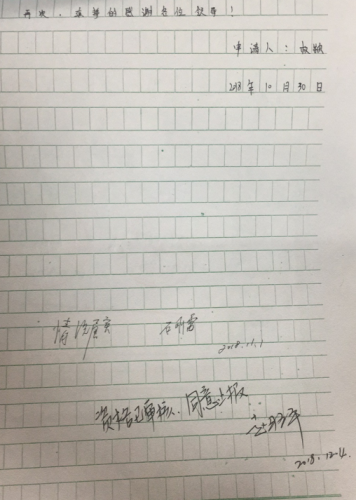 再次，真挚的感谢各位领导！
申请人：
2018年10月30日
情况属实
2018.11.1
资料已审核、同意上报.
2018.12.4